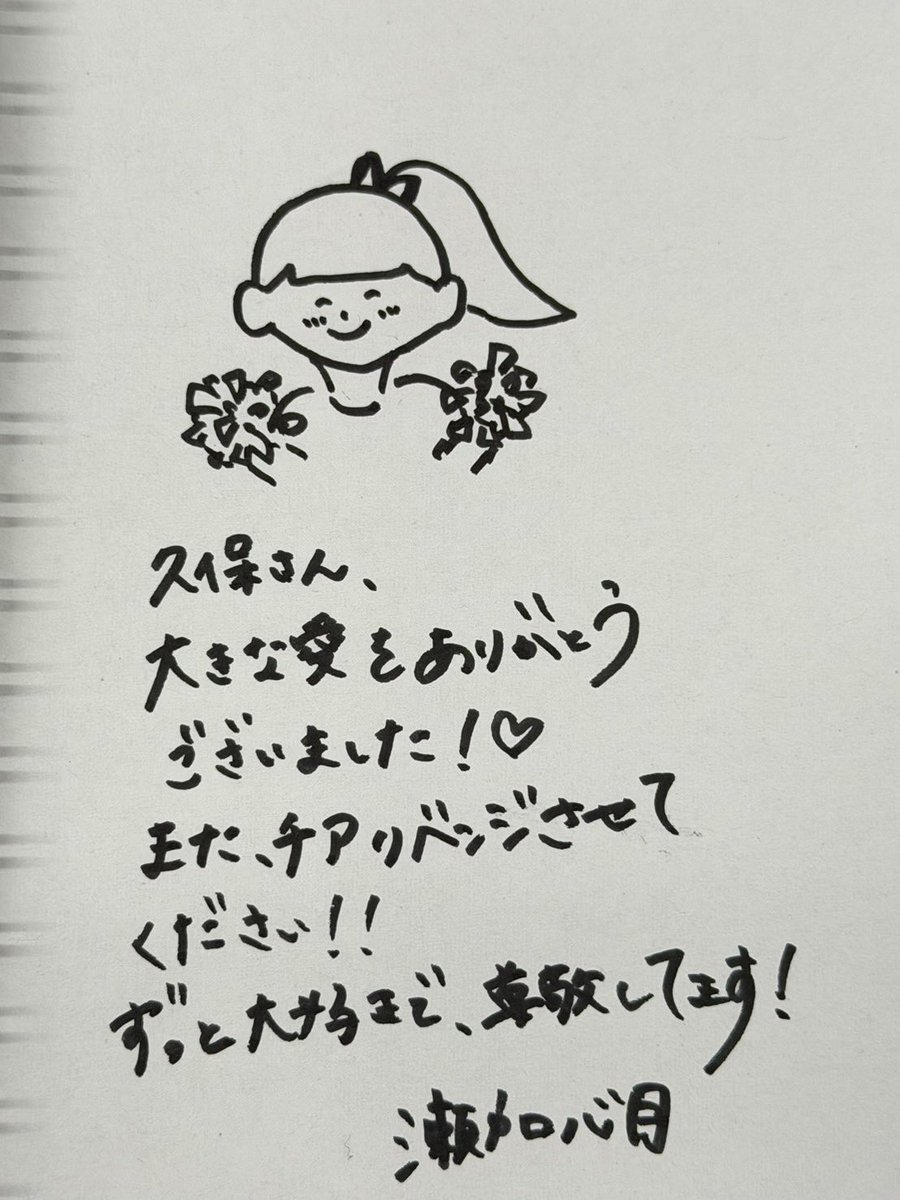 久保さん、
大きな愛をありがとう
ございました!♡
また、チアリベンジさせて
ください!!
ずっと大好きで、尊敬してます!
瀬加心月